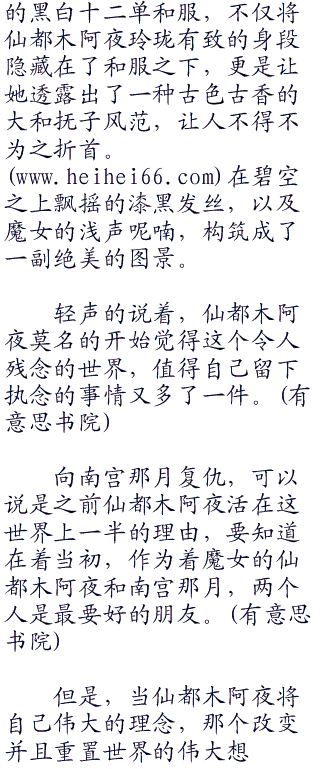 的黑白十二单和服，不仅将
仙都木阿夜玲珑有致的身段
隐藏在了和服之下，更是让
她透露出了一种古色古香的
大和抚子风范，让人不得不
为之折首。
(www.heihei66.com)在碧空
之上飘摇的漆黑发丝，以及
魔女的浅声呢喃，构筑成了
一副绝美的图景。
轻声的说着，仙都木阿
夜莫名的开始觉得这个令人
残念的世界，值得自己留下
执念的事情又多了一件。(有
意思书院)
向南宫那月复仇，可以
说是之前仙都木阿夜活在这
世界上一半的理由，要知道
在着当初，作为着魔女的仙
都木阿夜和南宫那月，两个
人是最要好的朋友。(有意思
书院)
但是，当仙都木阿夜将
自己伟大的理念，那个改变
并且重置世界的伟大想